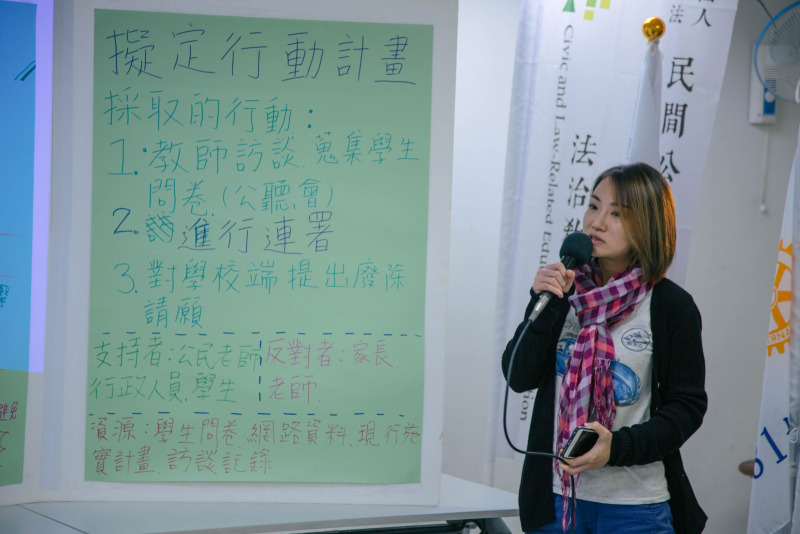 擬定行動計畫
採取的行動:
1. 教師訪談、蒐集學生
問卷(公聽會)
2. 進行連署
3. 對學校端提出廢除
請願
支持者:公民老師
行政人員.學生
反對者:家長.
老師.
資源:學生問卷.網路資料.現行施
實計畫.訪談記錄
Civic and Law-Related Edu
法治教
民間公
法人
tion